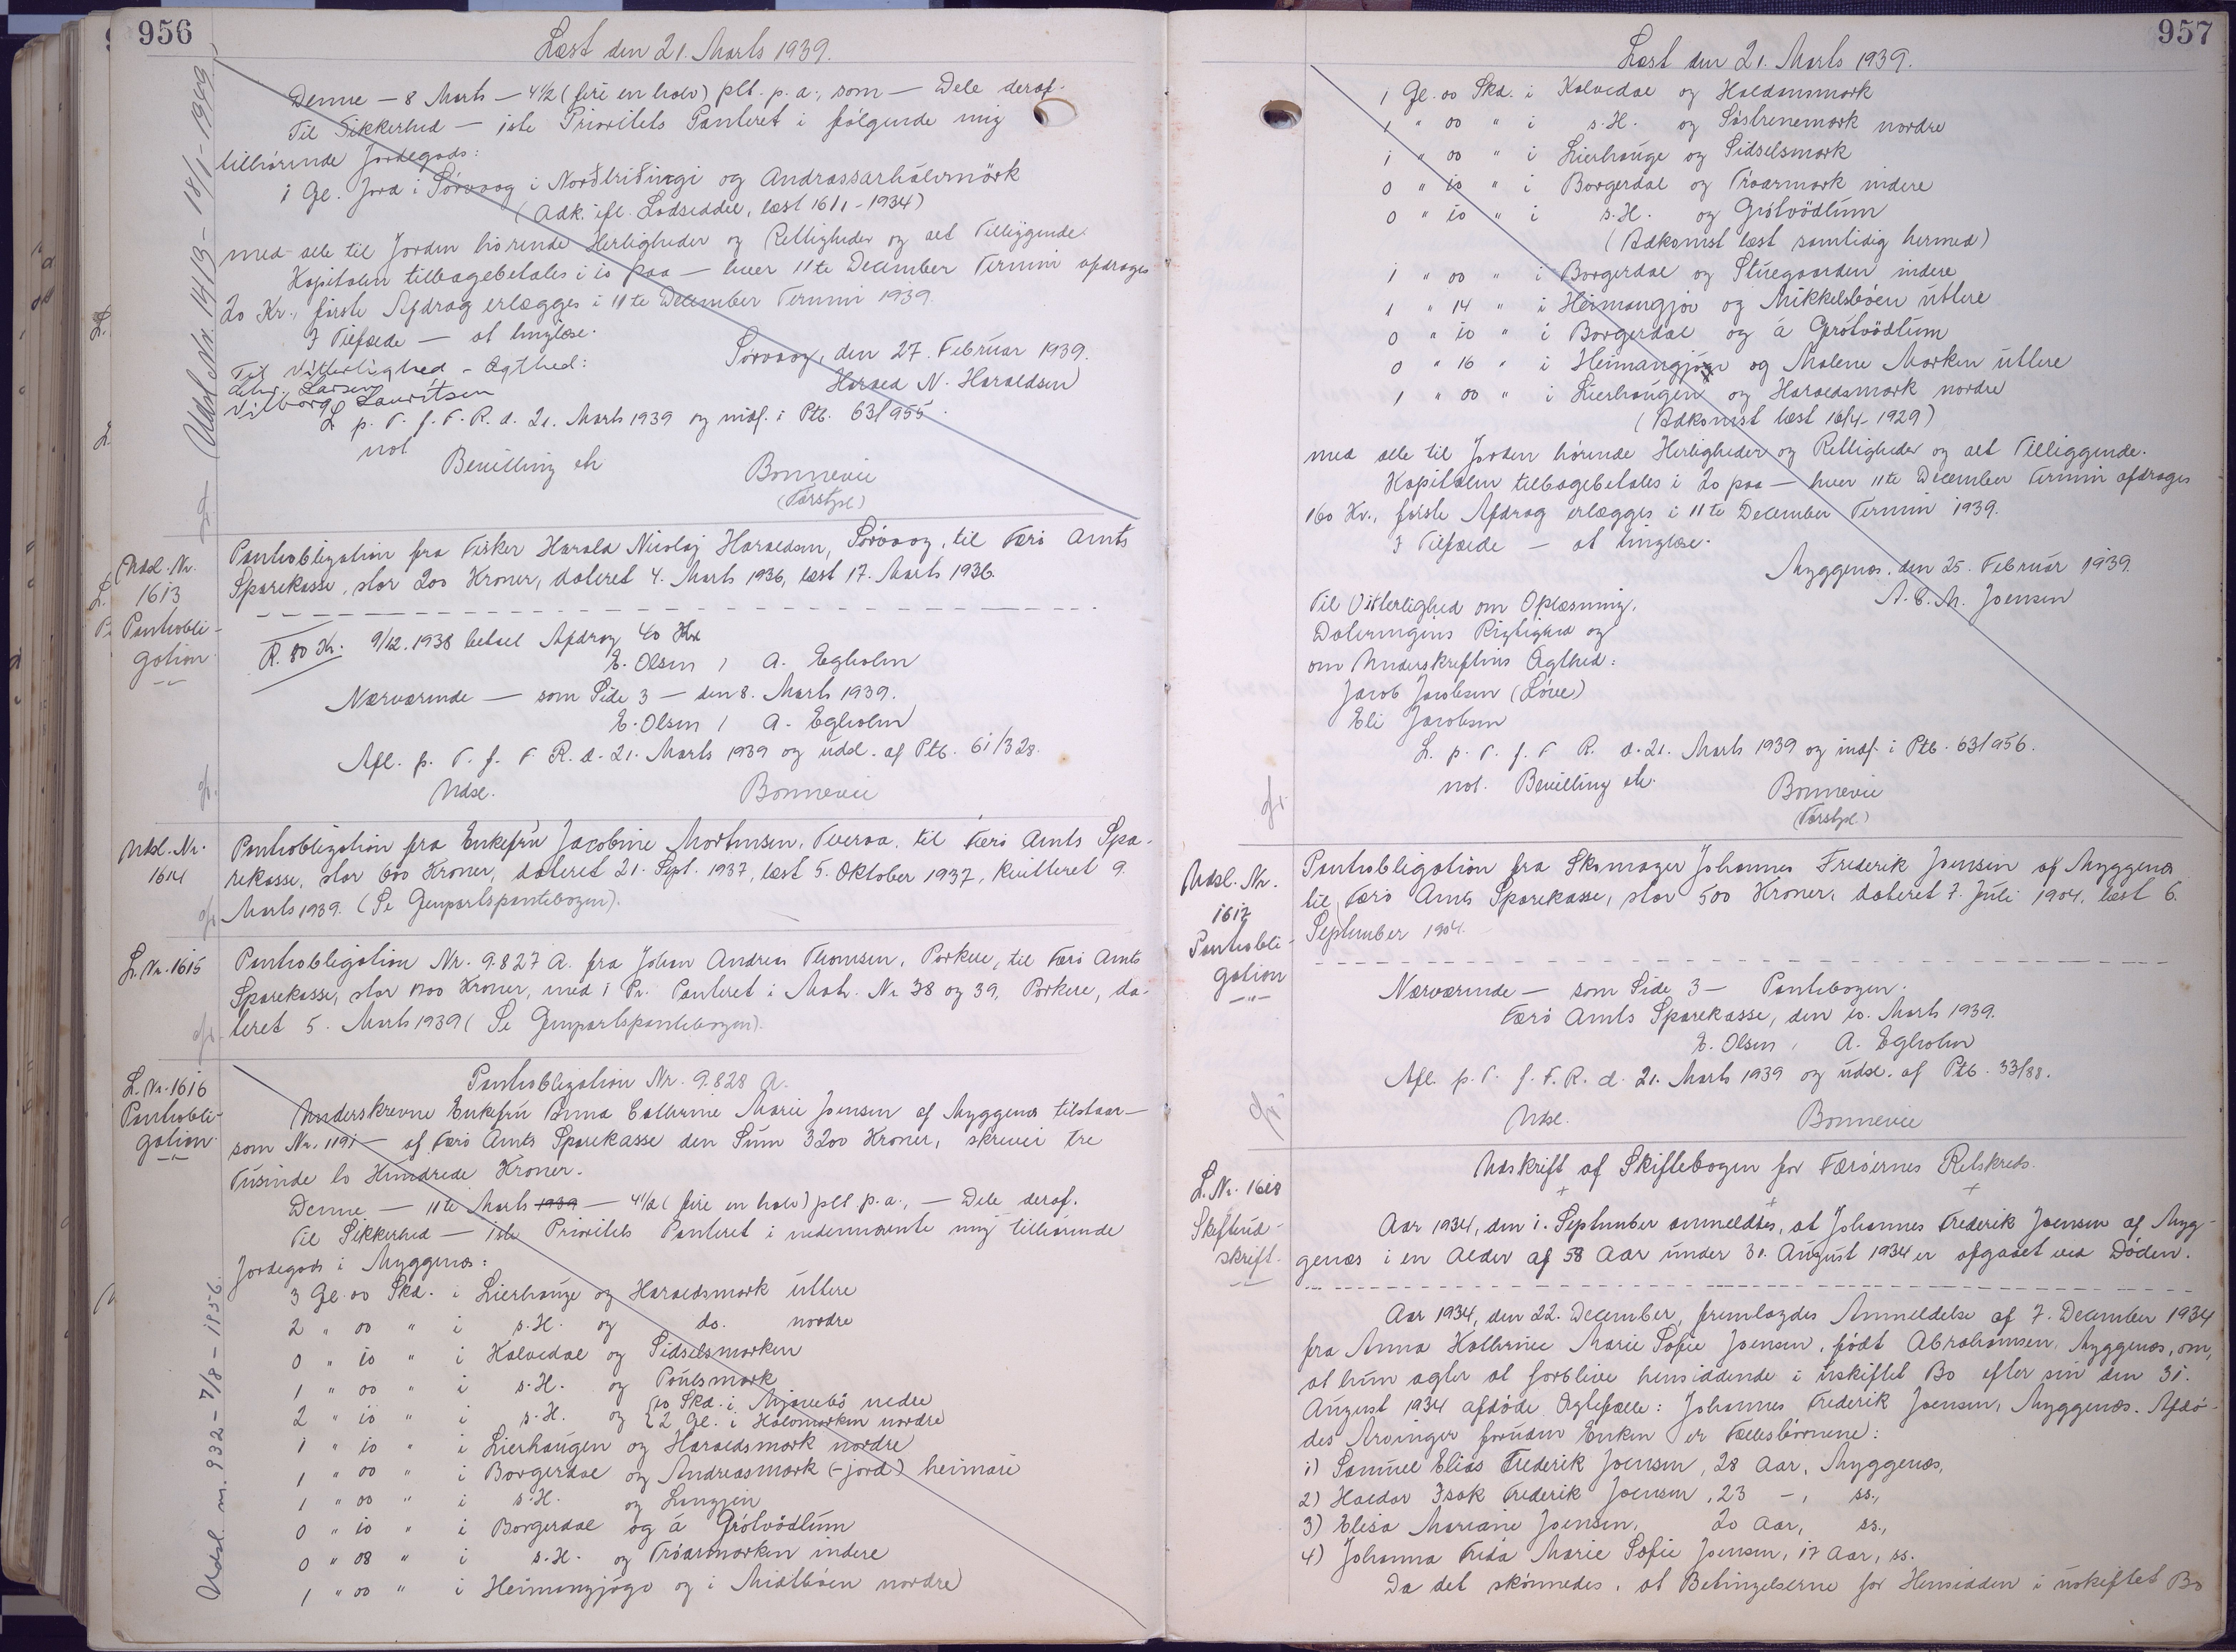 956
Læst den 21. Marts 1939.
Udsl. Nr. 1413 - 18/1 - 1949
Denne — 8 Marts — 4½ (fire en halv) pCt. p. a., som — Dele deraf.
Til Sikkerhed — 1ste Prioritets Panteret i følgende mig
tilhørende Jordegods:
1 Gl. Jord i Sörvaag i Norðtriðingi og Andrassarhálvmörk
(Adk. ifl. Lodseddel, læst 16/1 - 1934)
med alle til Jorden hørende Herligheder og Rettigheder og alt Tilliggende.
Kapitalen tilbagebetales i 10 paa — hver 11te December Termin afdrages
20 Kr., første Afdrag erlægges i 11te December Termin 1939.
I Tilfælde — at tinglæse.
Sörvaag, den 27. Februar 1939.
Til Vitterlighed - Ægthed:
Harald N. Haraldsen
Larsen
Vilborg Lauritsen
L. p. T. f. F. R. d. 21. Marts 1939 og indf. i Ptb. 63/955.
not
Bevilling etc
Bonnevie
(Færstyl)
gr.
Udsl. Nr.
1613
Pantobli-
gation
Pantobligation fra Fisker Harald Nicolaj Haraldsen, Sörvaag, til Færø Amts
Sparekasse, stor 200 Kroner, dateret 4. Marts 1936, læst 17. Marts 1936.
R. 80 Kr. 9/12. 1938 betalt Afdrag 40 Kr
E. Olsen / A. Egholm
Nærværende — som Side 3 — den 8. Marts 1939.
E. Olsen / A. Egholm
Afl. p. T. f. F. R. d. 21. Marts 1939 og udsl. af Ptb. 61/328.
Udsl.
Bonnevie
gr.
Udsl. Nr.
1614
Pantobligation fra Enkefrú Jacobine Mortensen, Tveraa, til Færø Amts Spa-
rekasse, stor 600 Kroner, dateret 21. Sept. 1937, læst 5. Oktober 1937, kvitteret 9.
Marts 1939. (Se Genpartspantebogen).
gr.
L. Nr. 1615
Pantobligation Nr. 9.827 A. fra Johan Andreas Thomsen, Porkere, til Færø Amts
Sparekasse, stor 1700 Kroner, med 1 Pr. Panteret i Matr. Nr. 38 og 39, Porkere, da-
teret 5. Marts 1939 (Se Genpartspantebogen).
gr.
L. Nr. 1616
Pantobli-
gation
Udsl. m. 932 - 7/8 - 1956.
Pantobligation Nr. 9.828 A.
Underskrevne Enkefrú Anna Cathrine Marie Joensen af Myggenæs tilstaar —
som Nr. 1191 — af Færø Amts Sparekasse den Súm 3200 Kroner, skriver tre
Túsinde to Hundrede Kroner.
Denne — 11te Marts 1939 — 4½ (fire en halv) pCt. p. a., — Dele deraf.
Til Sikkerhed — 1ste Prioritets Panteret i nedennævnte mig tilhørende
Jordegods i Myggenæs:
3 Gl. 00 Skd. i Lierhauge og Haraldsmark úttere
2 " 00 " i s. H. og do. nordre
0 " 10 " i Kalvedal og Sidselsmarken
1 " 00 " i s. H. og Poúlsmark
2 " 10 " i s. H. og { 10 Skd. i Mjavebö nedre
{ 2 Gl. i Halvmarken nordre
1 " 10 " i Lierhaugen og Haraldsmark nordre
1 " 00 " i Borgerdal og Andreasmark (- jord) heimari
1 " 00 " i s. H. og Langjen
0 " 10 " i Borgerdal og á Grótvödlúm
0 " 08 " i s. H. og Tróarmarken indere
1 " 00 " i Heimangjógv og i Midtböen nordre
957
Læst den 21. Marts 1939.
1 Gl. 00 Skd. i Kalvedal og Haldansmark
1 " 00 " i s. H. og Söstrenemark nordre
1 " 00 " i Lierhauge og Sidselsmark
0 " 10 " i Borgerdal og Tróarmark indere
0 " 10 " i s. H. og Grótvödlúm
(Adkomst læst samtidig hermed)
1 " 00 " i Borgerdal og Stúegaarden indere
1 " 14 " i Heimangjov og Mikkelsböen úttere
0 " 10 " i Borgerdal og á Grótvödlúm
0 " 16 " i Heimangjógv og Malene Marken úttere
1 " 00 " i Lierhaugen og Haraldsmark nordre
(Adkomst læst 16/4 - 1929)
med alle til Jorden hørende Herligheder og Rettigheder og alt Tilliggende.
Kapitalen tilbagebetales i 20 paa — hver 11te December Termin afdrages
160 Kr., første Afdrag erlægges i 11te December Termin 1939.
I Tilfælde — at tinglæse.
Myggenæs, den 25. Februar 1939.
A. C. M. Joensen
Til Vitterlighed om Oplæsning,
Dateringens Rigtighed og
om Underskriftens Ægthed:
Jacob Jacobsen (Löve)
Eli Jacobsen
L. p. T. f. F. R. d. 21. Marts 1939 og indf. i Ptb. 63/956.
not. Bevilling etc.
Bonnevie
(Færstyl.)
gr.
Udsl. Nr.
1617
Pantobli-
gation
Pantobligation fra Skomager Johannes Frederik Joensen af Myggenæs
til Færø Amts Sparekasse, stor 500 Kroner, dateret 7. Júli 1904, læst 6.
September 1904.
Nærværende — som Side 3 — Pantebogen.
Færø Amts Sparekasse, den 10. Marts 1939.
E. Olsen, A. Egholm
Afl. p. T. f. F. R. d. 21. Marts 1939 og údsl. af Ptb. 33/88.
Udsl.
Bonnevie
gr.
L. Nr. 1618
Skifteúd-
skrift.
Udskrift af Skiftebogen for Færøernes Retskreds.
Aar 1934, den 1. September anmeldtes, at Johannes Frederik Joensen af Myg-
genæs i en Alder af 58 Aar únder 31. Aúgúst 1934 er afgaaet ved Døden.
Aar 1934, den 22. December, fremlagdes Anmeldelse af 7. December 1934
fra Anna Kathrine Marie Sofie Joensen, født Abrahamsen, Myggenæs, om,
at hún agter at forblive hensiddende i úskiftet Bo efter sin den 31.
Aúgúst 1934 afdøde Ægtefælle: Johannes Frederik Joensen, Myggenæs. Afdø-
des Arvinger forúden Enken er Fællesbørnene:
1) Samúel Elias Frederik Joensen, 28 Aar, Myggenæs,
2) Haldor Isak Frederik Joensen, 23 -, ss.,
3) Elisa Mariane Joensen, 20 Aar, ss.,
4) Johanna Frida Marie Sofie Joensen, 17 Aar, ss.
Da det skønnedes, at Betingelserne for Hensidden i úskiftet Bo